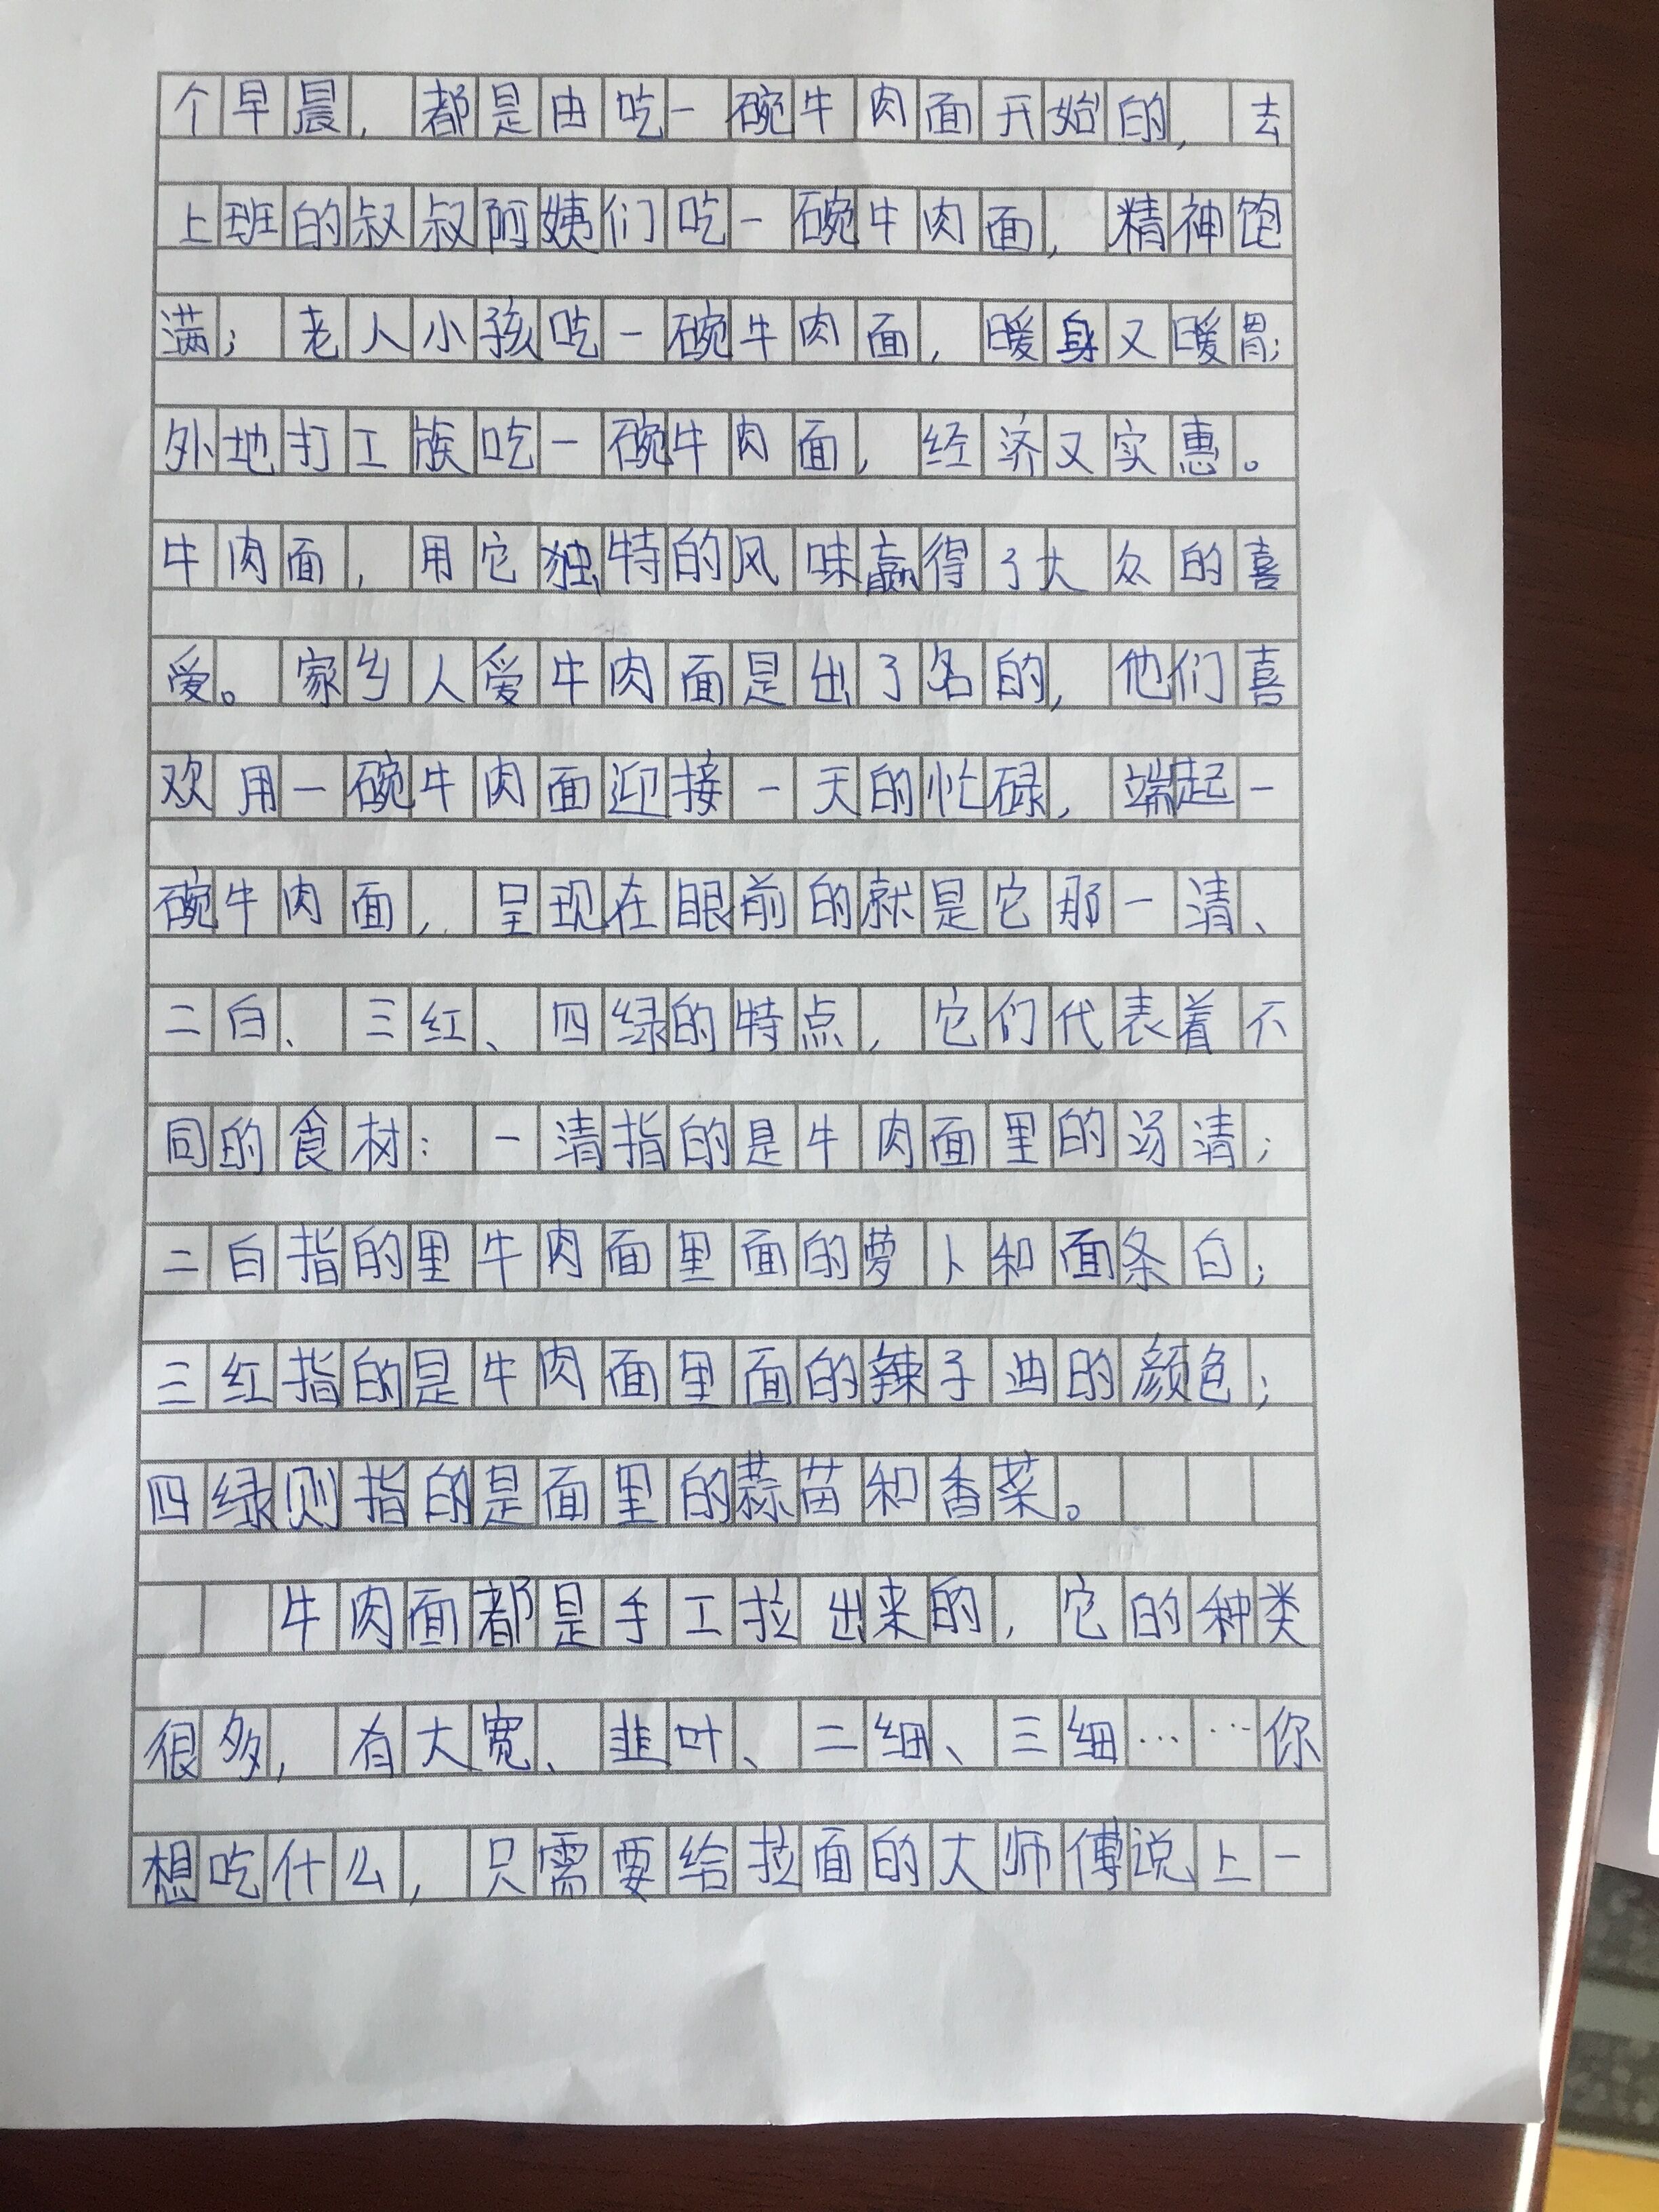 个早晨，都是由吃一碗牛肉面开始的，去
上班的叔叔阿姨们吃一碗牛肉面，精神饱
满；老人小孩吃一碗牛肉面，暖身又暖胃；
外地打工族吃一碗牛肉面，经济又实惠。
牛肉面，用它独特的风味赢得了大众的喜
爱。家乡人爱牛肉面是出了名的，他们喜
欢用一碗牛肉面迎接一天的忙碌，端起一
碗牛肉面，呈现在眼前的就是它那一清、
二白、三红、四绿的特点，它们代表着不
同的食材：一清指的是牛肉面里的汤清；
二白指的里牛肉面里面的萝卜和面条白；
三红指的是牛肉面里面的辣子油的颜色；
四绿则指的是面里的蒜苗和香菜。
牛肉面都是手工拉出来的，它的种类
很多，有大宽、韭叶、二细、三细……你
想吃什么，只需要给拉面的大师傅说上一